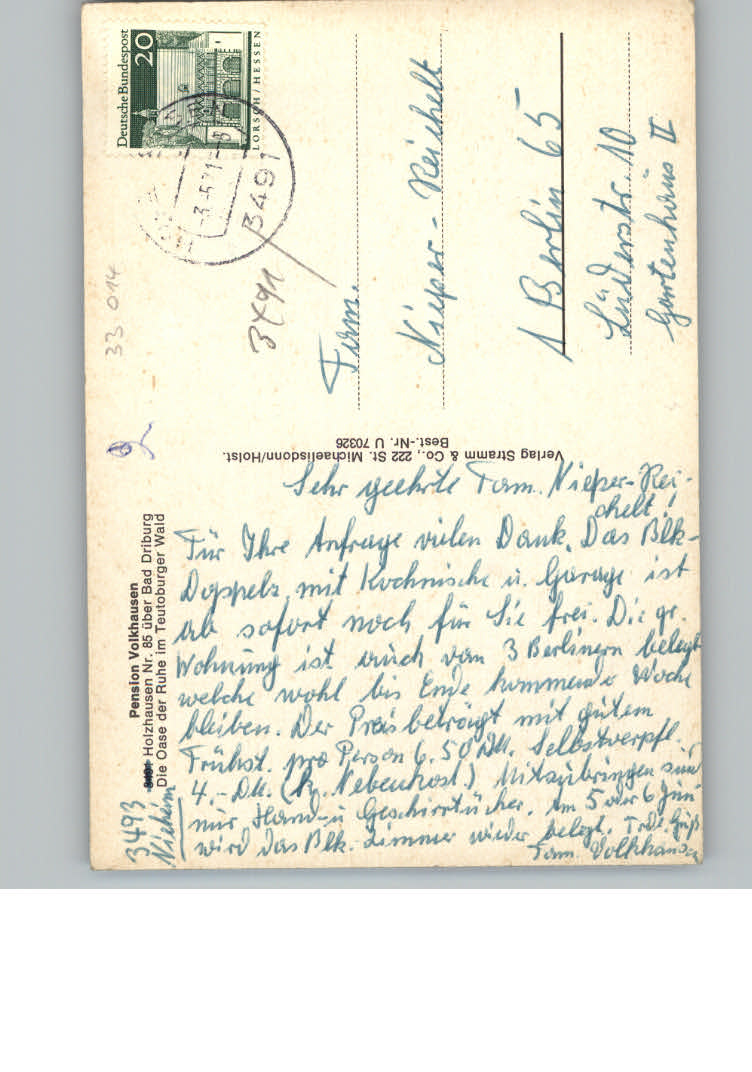 Pension Volkhausen
3491 Holzhausen Nr. 85 über Bad Driburg
Die Oase der Ruhe im Teutoburger Wald
3493
Nieheim
Sehr geehrte Fam. Nieper-Rei-
chelt!
Für Ihre Anfrage vielen Dank. Das Blk-
Doppelz. mit Kochnische u. Garage ist
ab sofort noch für Sie frei. Die gr.
Wohnung ist auch von 3 Berlinern belegt
welche wohl bis Ende kommende Woche
bleiben. Der Preis beträgt mit gutem
Frühst. pro Person 6.50 DM. Selbstverpfl.
4.- DM. (k. Nebenkost.) Mitzubringen sind
nur Hand- u Geschirrtücher. Am 5 oder 6 Juni
wird das Blk. Zimmer wieder belegt. Frdl. Gruß
Fam. Volkhausen
Verlag Stramm & Co., 222 St. Michaelisdonn/Holst.
Best.-Nr. U 70326
Deutsche Bundespost
20
LORSCH/HESSEN
3491
-3.-5.71-5
3491
33 014
Fam.
Nieper-Reichelt
1 Berlin 65
Lüderstr. 10
Gartenhaus II